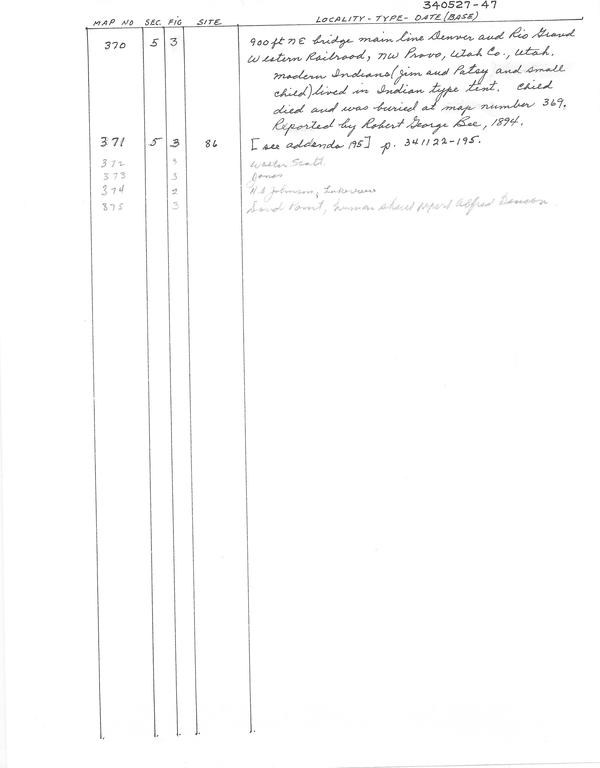 340527-47
MAP NO SEC. FIG SITE LOCALITY - TYPE - DATE (BASE)
370 5 3 900 ft NE bridge main line Denver and Rio Grand
Western Railroad, NW Provo, Utah Co., Utah.
modern Indians (Jim and Patsy and small
child) lived in Indian type tent. Child
died and was buried at map number 369.
Reported by Robert George Bee, 1894.
371 5 3 86 [see addenda 195] p. 341122-195.
372 3 Walter Scott
373 3 Jones
374 2 Johnson, Lakeview
375 3 Sand Point, human report Alfred